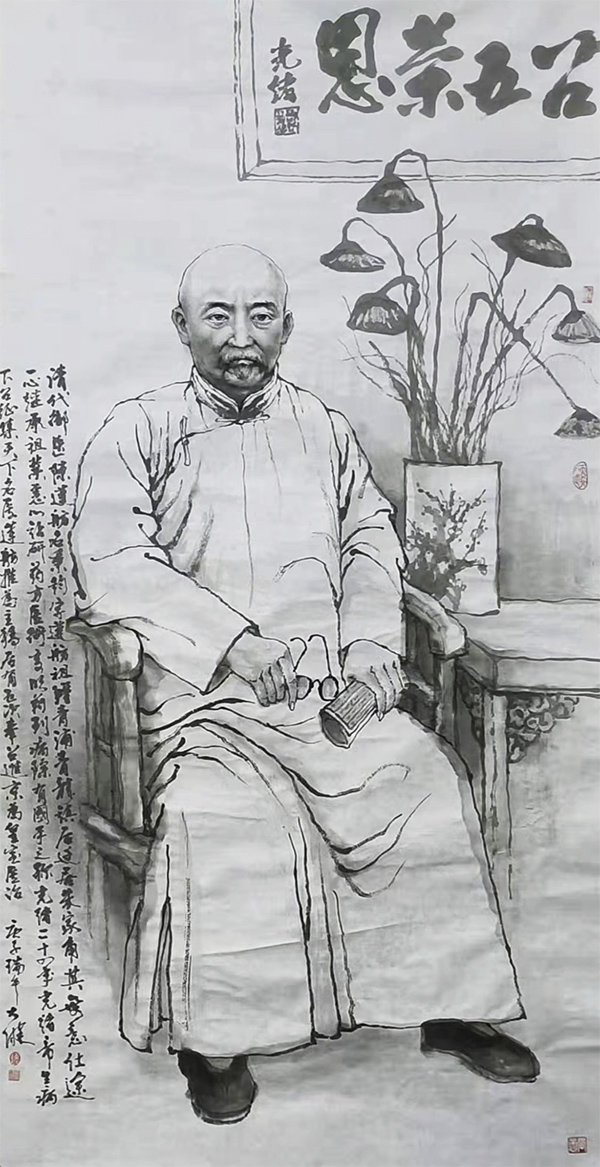 召五荣恩
光绪
清代御医陈莲舫名秉钧字莲舫祖籍青浦青龙镇后迁居朱家角其无意仕途
一心继承祖业悉心钻研药方医术高明药到病除有国手之称光绪二十四年光绪帝生病
下召征集天下名医莲舫推为主稿后有五次奉召进京为皇室医治 庚子端午